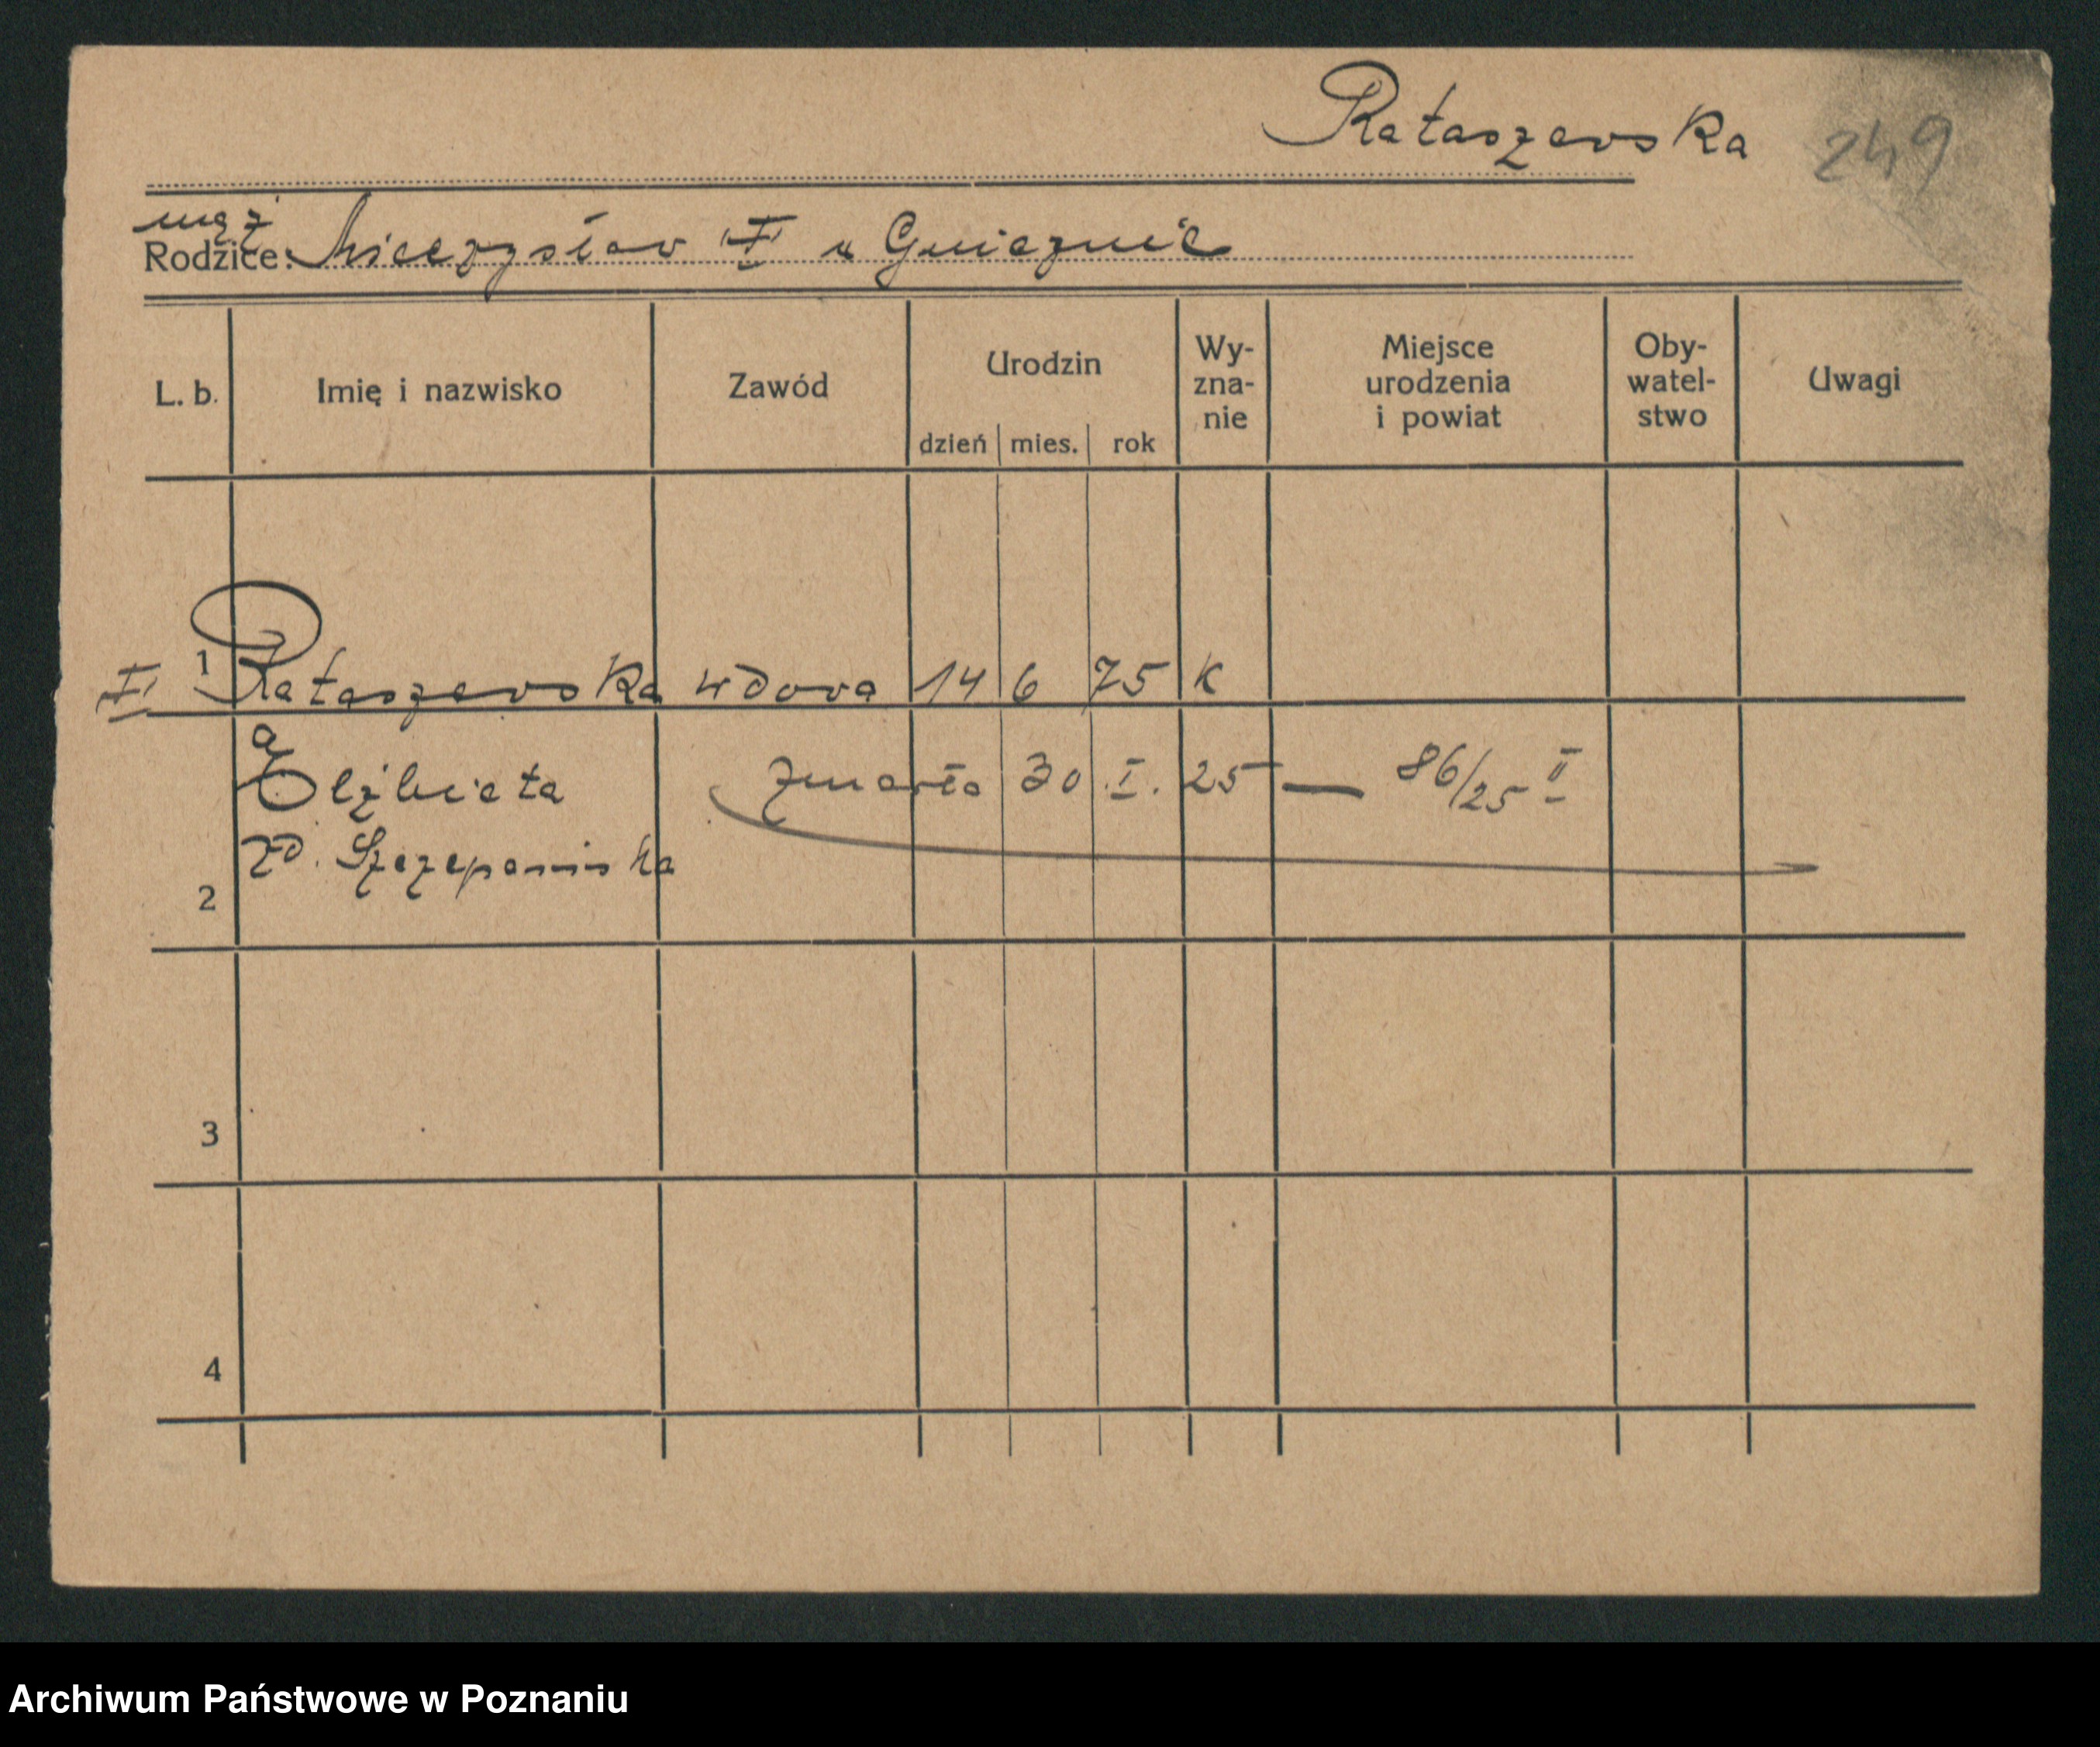 Rataszewska 249
mąż
Rodzice: Mieczysław † w Gnieźnie
L. b. Imię i nazwisko Zawód Urodzin dzień mies. rok Wy-zna-nie Miejsce urodzenia i powiat Oby-watel-stwo Uwagi
1 Rataszewska wdowa 14 6 75 k
Elżbieta zmarła 30 I. 25 — 86/25 II
zd. Szczepańska
2
3
4
Archiwum Państwowe w Poznaniu